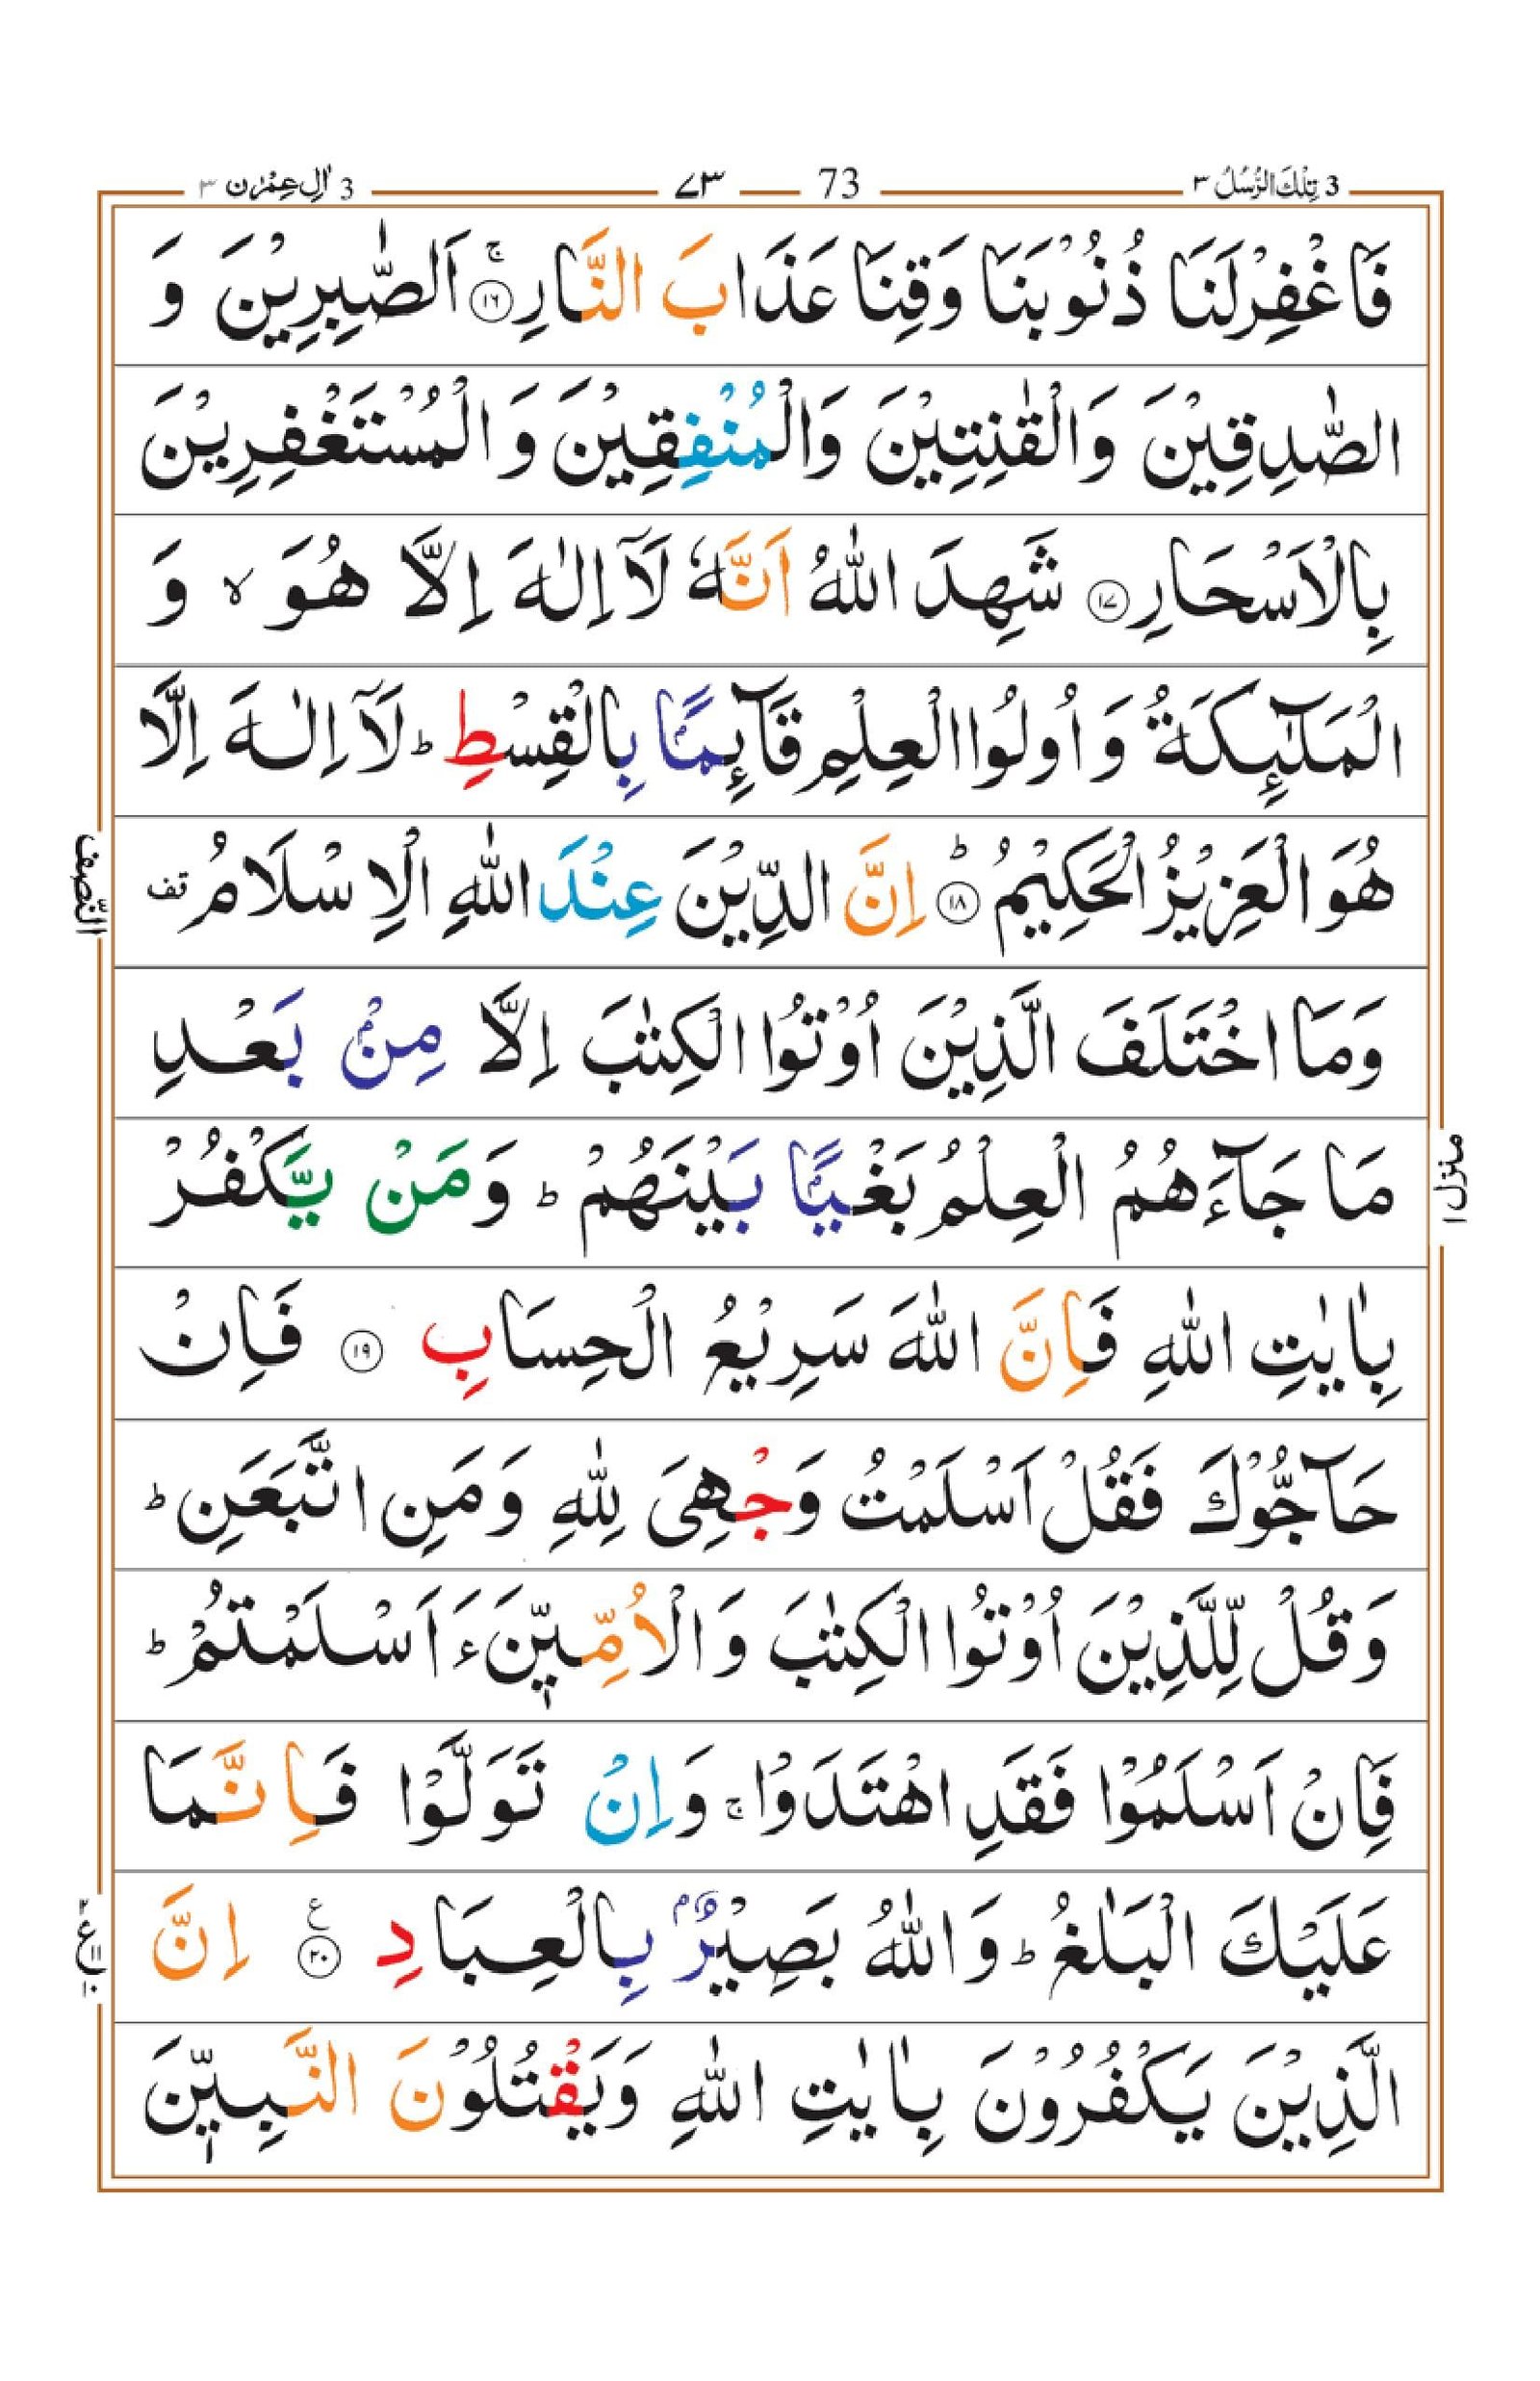 3 تِلْكَ الرُّسُلُ ٣
73 ٧٣
3 اٰلِ عِمْرٰن ٣
فَاغْفِرْلَنَا ذُنُوْبَنَا وَقِنَا عَذَابَ النَّارِ ۚ ﴿١٦﴾ اَلصّٰبِرِيْنَ وَ
الصّٰدِقِيْنَ وَالْقٰنِتِيْنَ وَالْمُنْفِقِيْنَ وَ الْمُسْتَغْفِرِيْنَ
بِالْاَسْحَارِ ﴿١٧﴾ شَهِدَ اللّٰهُ اَنَّهٗ لَآ اِلٰهَ اِلَّا هُوَ ۙ وَ
الْمَلٰٓئِكَةُ وَ اُولُوا الْعِلْمِ قَآئِمًۢا بِالْقِسْطِ ؕ لَآ اِلٰهَ اِلَّا
هُوَ الْعَزِيْزُ الْحَكِيْمُ ؕ ﴿١٨﴾ اِنَّ الدِّيْنَ عِنْدَ اللّٰهِ الْاِسْلَامُ قف
النصف
وَمَا اخْتَلَفَ الَّذِيْنَ اُوْتُوا الْكِتٰبَ اِلَّا مِنْۢ بَعْدِ
مَا جَآءَهُمُ الْعِلْمُ بَغْيًۢا بَيْنَهُمْ ؕ وَمَنْ يَّكْفُرْ
منزل ١
بِاٰيٰتِ اللّٰهِ فَاِنَّ اللّٰهَ سَرِيْعُ الْحِسَابِ ﴿١٩﴾ فَاِنْ
حَآجُّوْكَ فَقُلْ اَسْلَمْتُ وَجْهِىَ لِلّٰهِ وَمَنِ اتَّبَعَنِ ؕ
وَقُلْ لِّلَّذِيْنَ اُوْتُوا الْكِتٰبَ وَالْاُمِّيّٖنَ ءَاَسْلَمْتُمْ ؕ
فَاِنْ اَسْلَمُوْا فَقَدِ اهْتَدَوْا ۚ وَاِنْ تَوَلَّوْا فَاِنَّمَا
عَلَيْكَ الْبَلٰغُ ؕ وَاللّٰهُ بَصِيْرٌۢ بِالْعِبَادِ ﴿٢٠﴾ ع اِنَّ
الَّذِيْنَ يَكْفُرُوْنَ بِاٰيٰتِ اللّٰهِ وَيَقْتُلُوْنَ النَّبِيّٖنَ